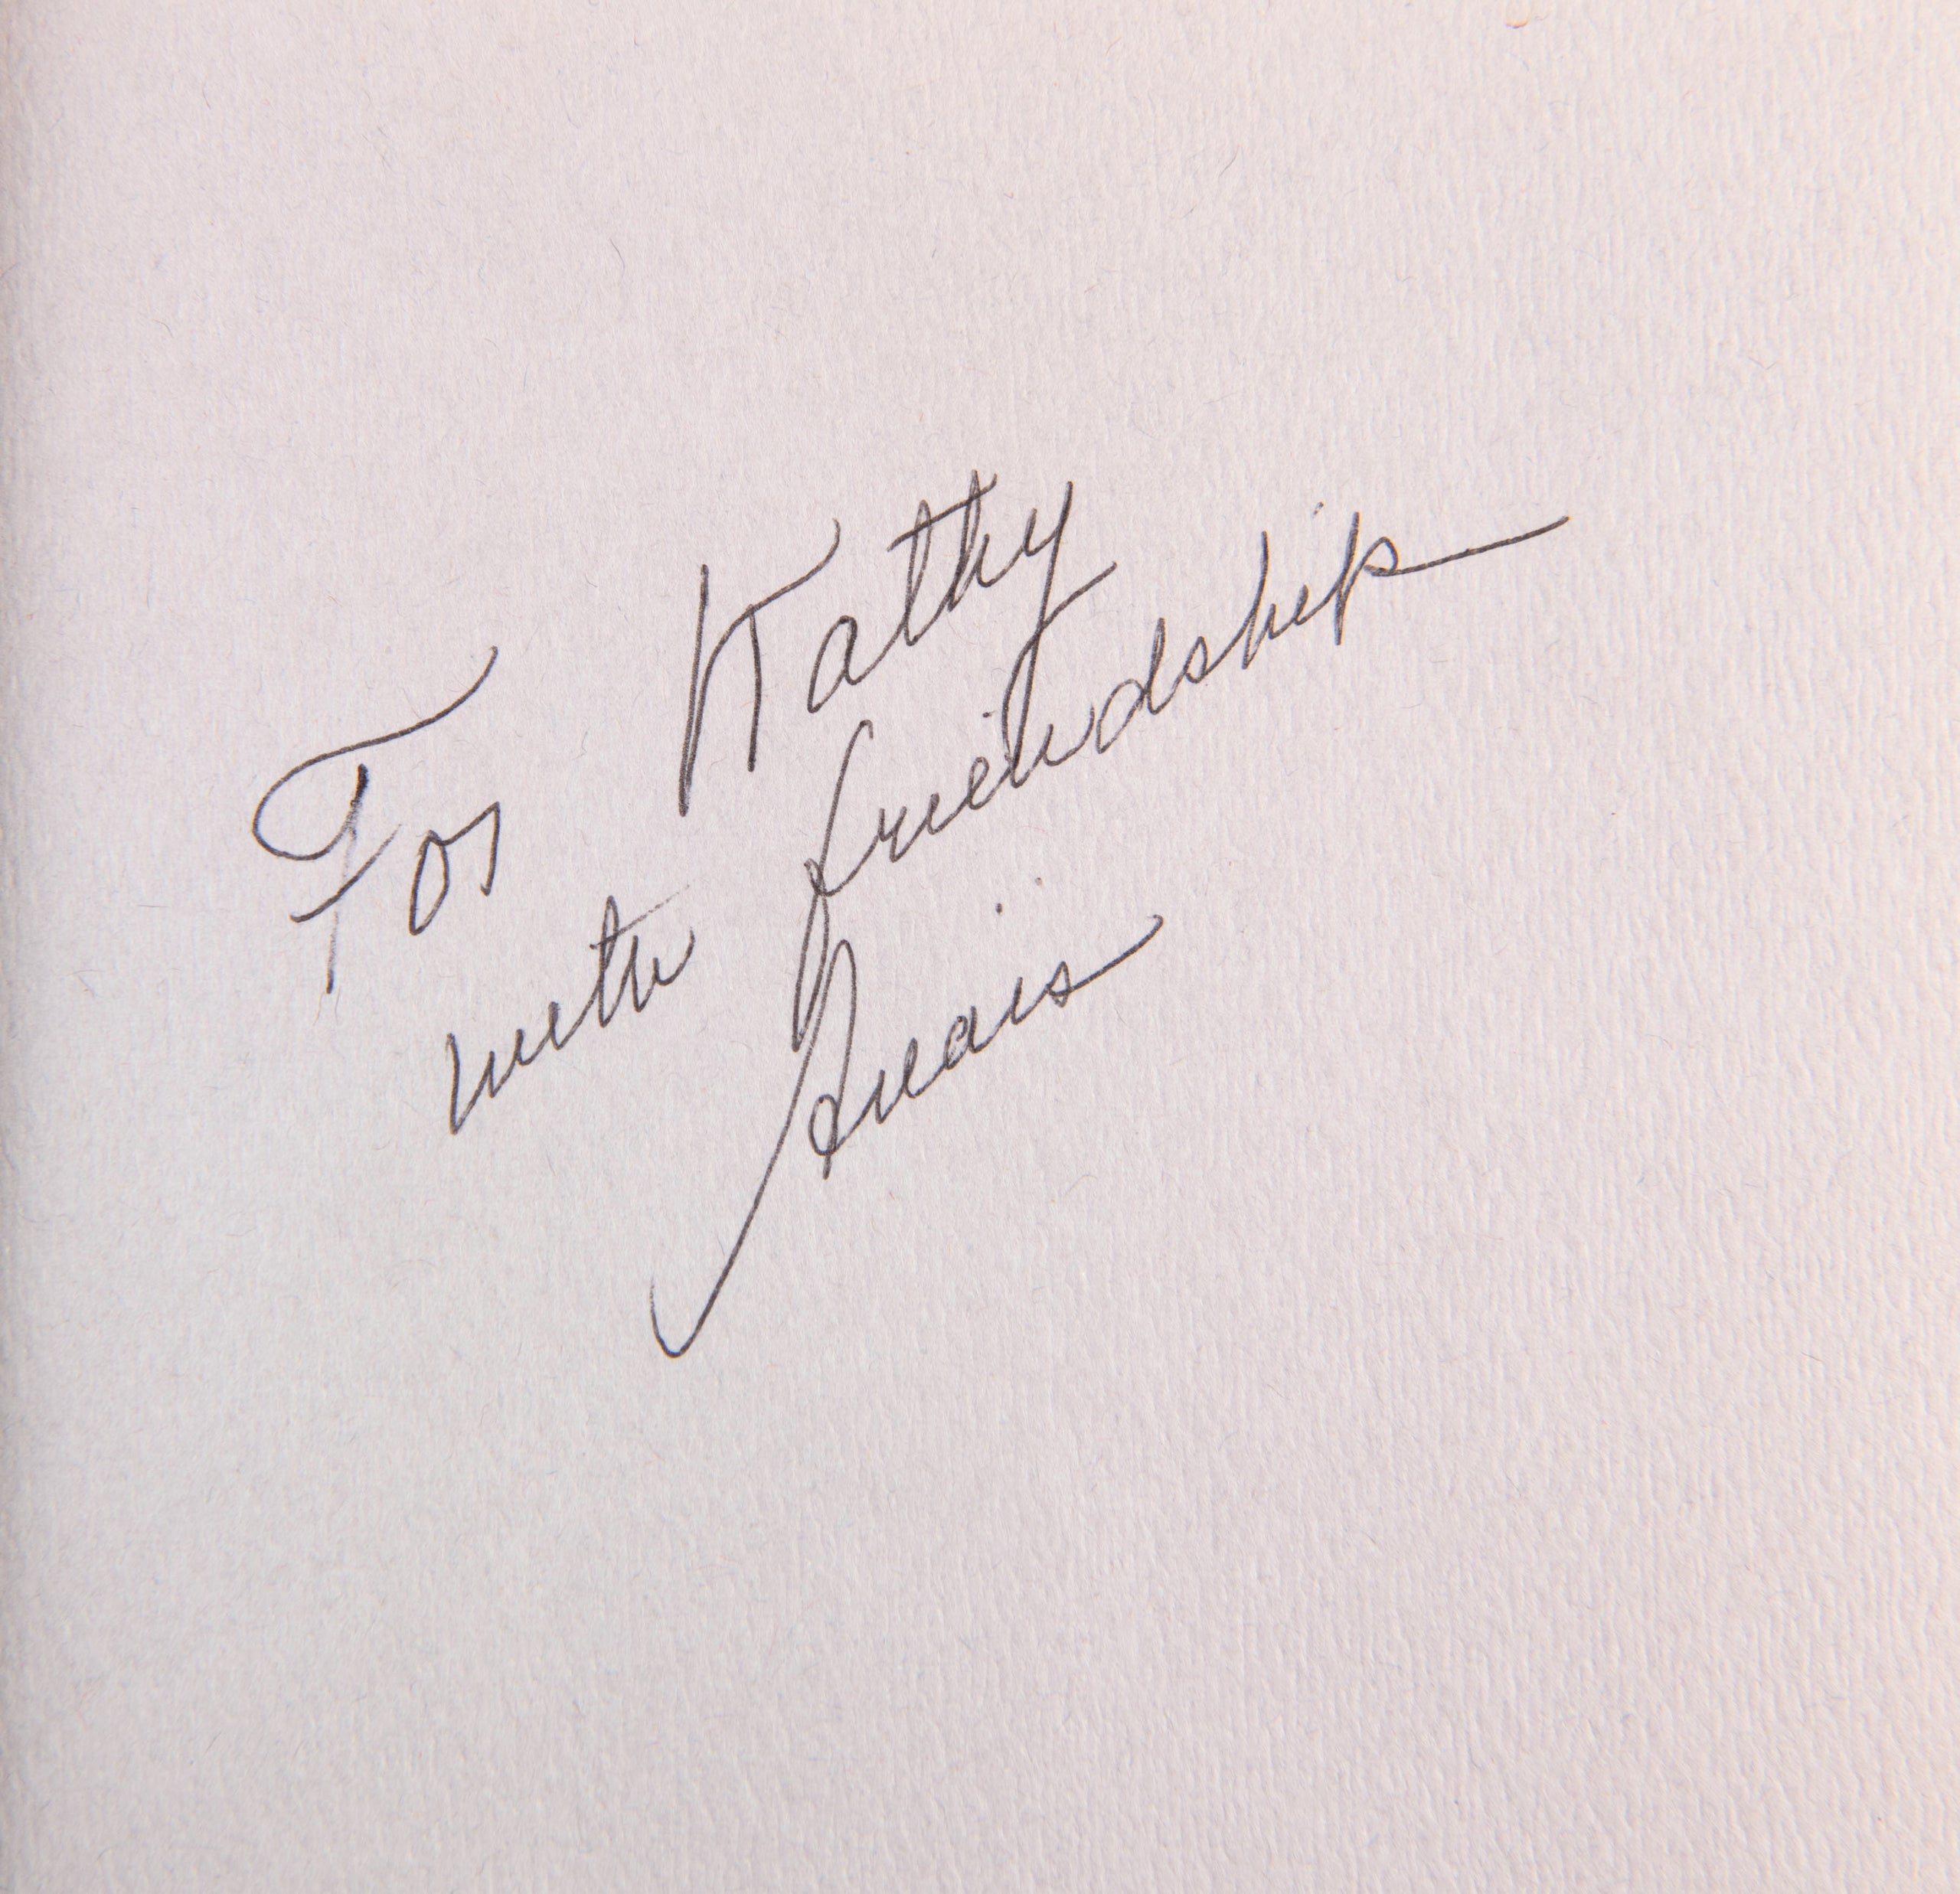 For Kathy
with friendship
Anais